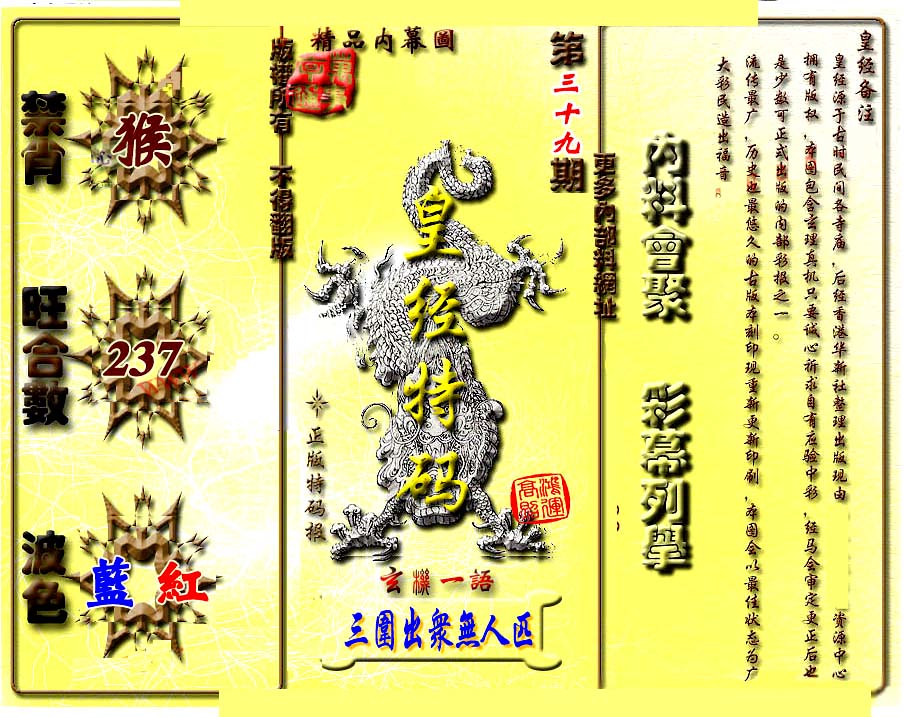 皇经备注
皇经源于古时民间各寺庙，后经香港华新社整理出版现由 资源中心
拥有版权，本图包含玄理真机只要诚心祈求自有应验中彩，经马会审定更正后也
是少数可正式出版的内部彩报之一。
流传最广，历史也最悠久的古版本刻印现重新更新印刷，本图会以最佳状态为广
大彩民造出福音
內料會聚 彩幕列舉
更多內部料網址
第三十九期
精品内幕圖
皇经特码
正版特码报
鴻運
高照
玄機一語
三圍出衆無人匹
版權所有 不得翻版
禁肖
猴
旺合數
237
波色
藍 紅